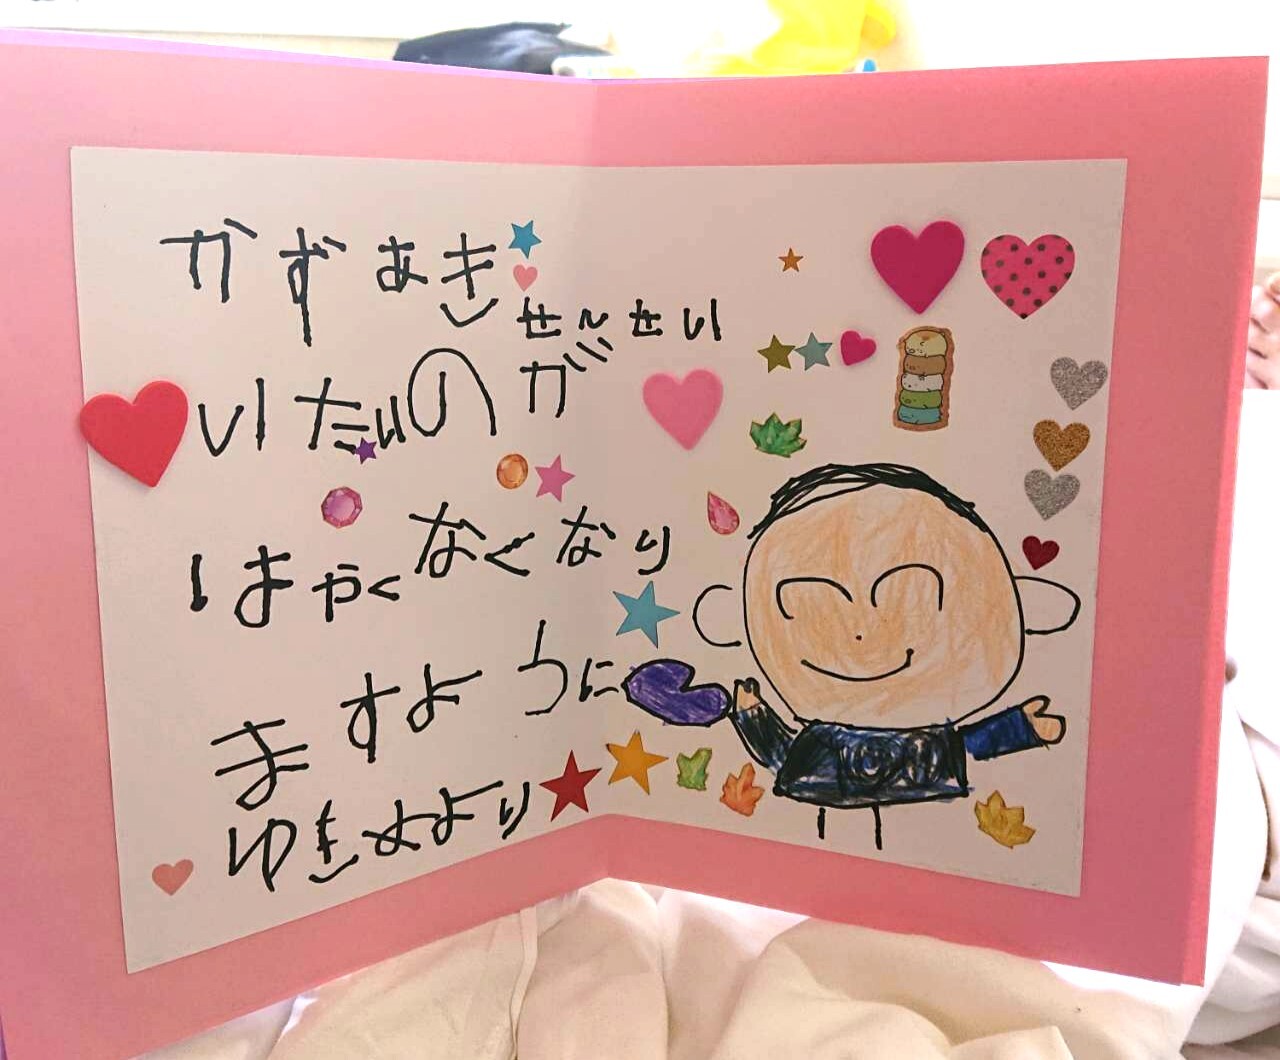 かずあき
せんせい
いたいのが
はやくなくなり
ますように
ゆきよより